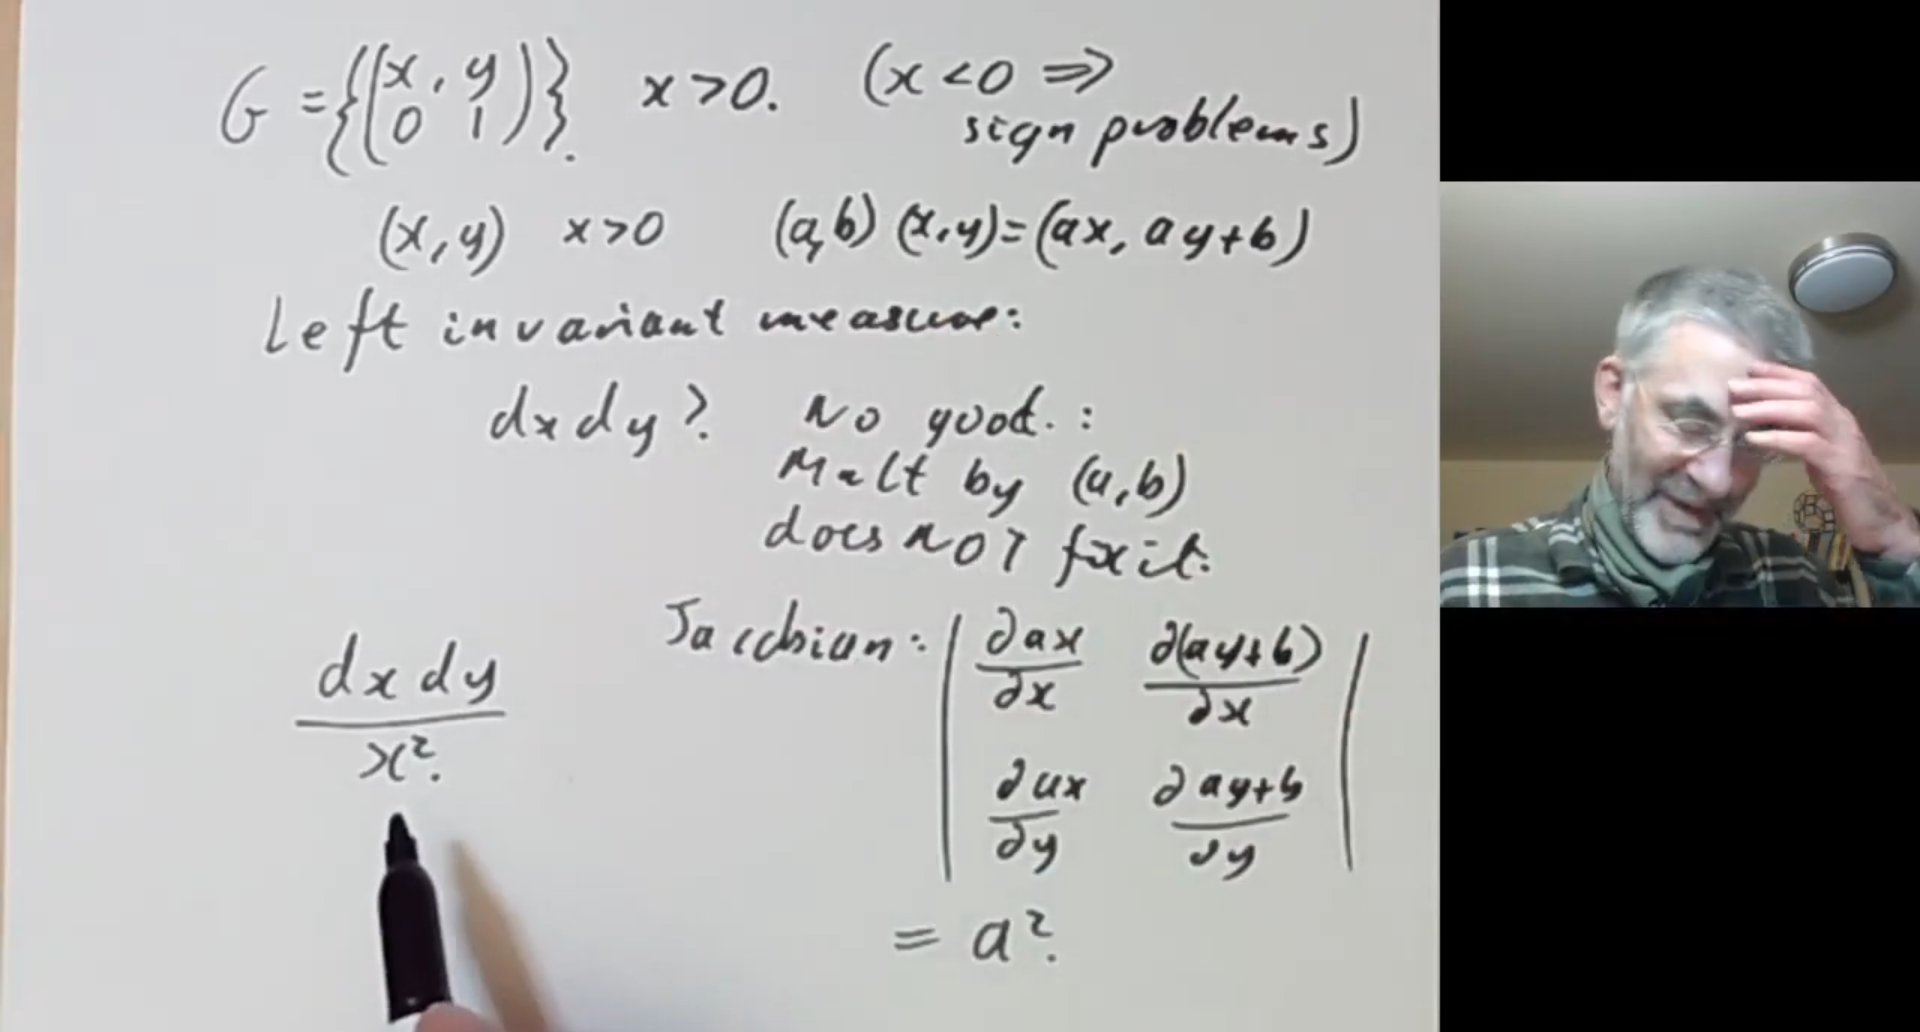 G = {(x, y
0 1)}. x>0. (x<0 ⇒
sign problems)
(x,y) x>0 (a,b) (x,y)=(ax, ay+b)
Left invariant measure:
dxdy? No good.:
Mult by (a,b)
does NOT fix it.
Jacobian: | ∂ax/∂x ∂(ay+b)/∂x |
| ∂ax/∂y ∂ay+b/∂y |
dx dy
x².
= a².